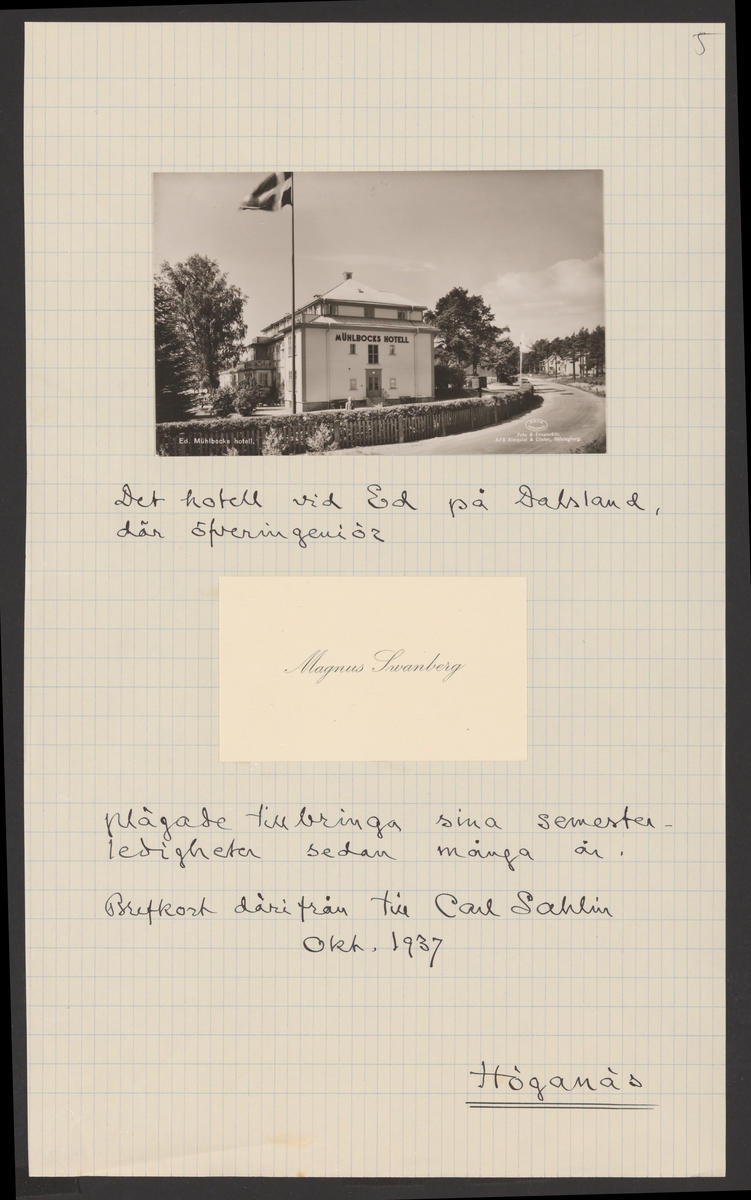 5
MÜHLBOCKS HOTELL
Ed. Mühlbocks hotell.
Foto & Ensamrätt:
A/B Almquist & Cöster, Hälsingborg.
Det hotell vid Ed på Dalsland,
där öfveringeniör
Magnus Swanberg
plägade tillbringa sina semester-
ledigheter sedan många år.
Brefkort därifrån till Carl Sahlin
Okt. 1937
Höganäs